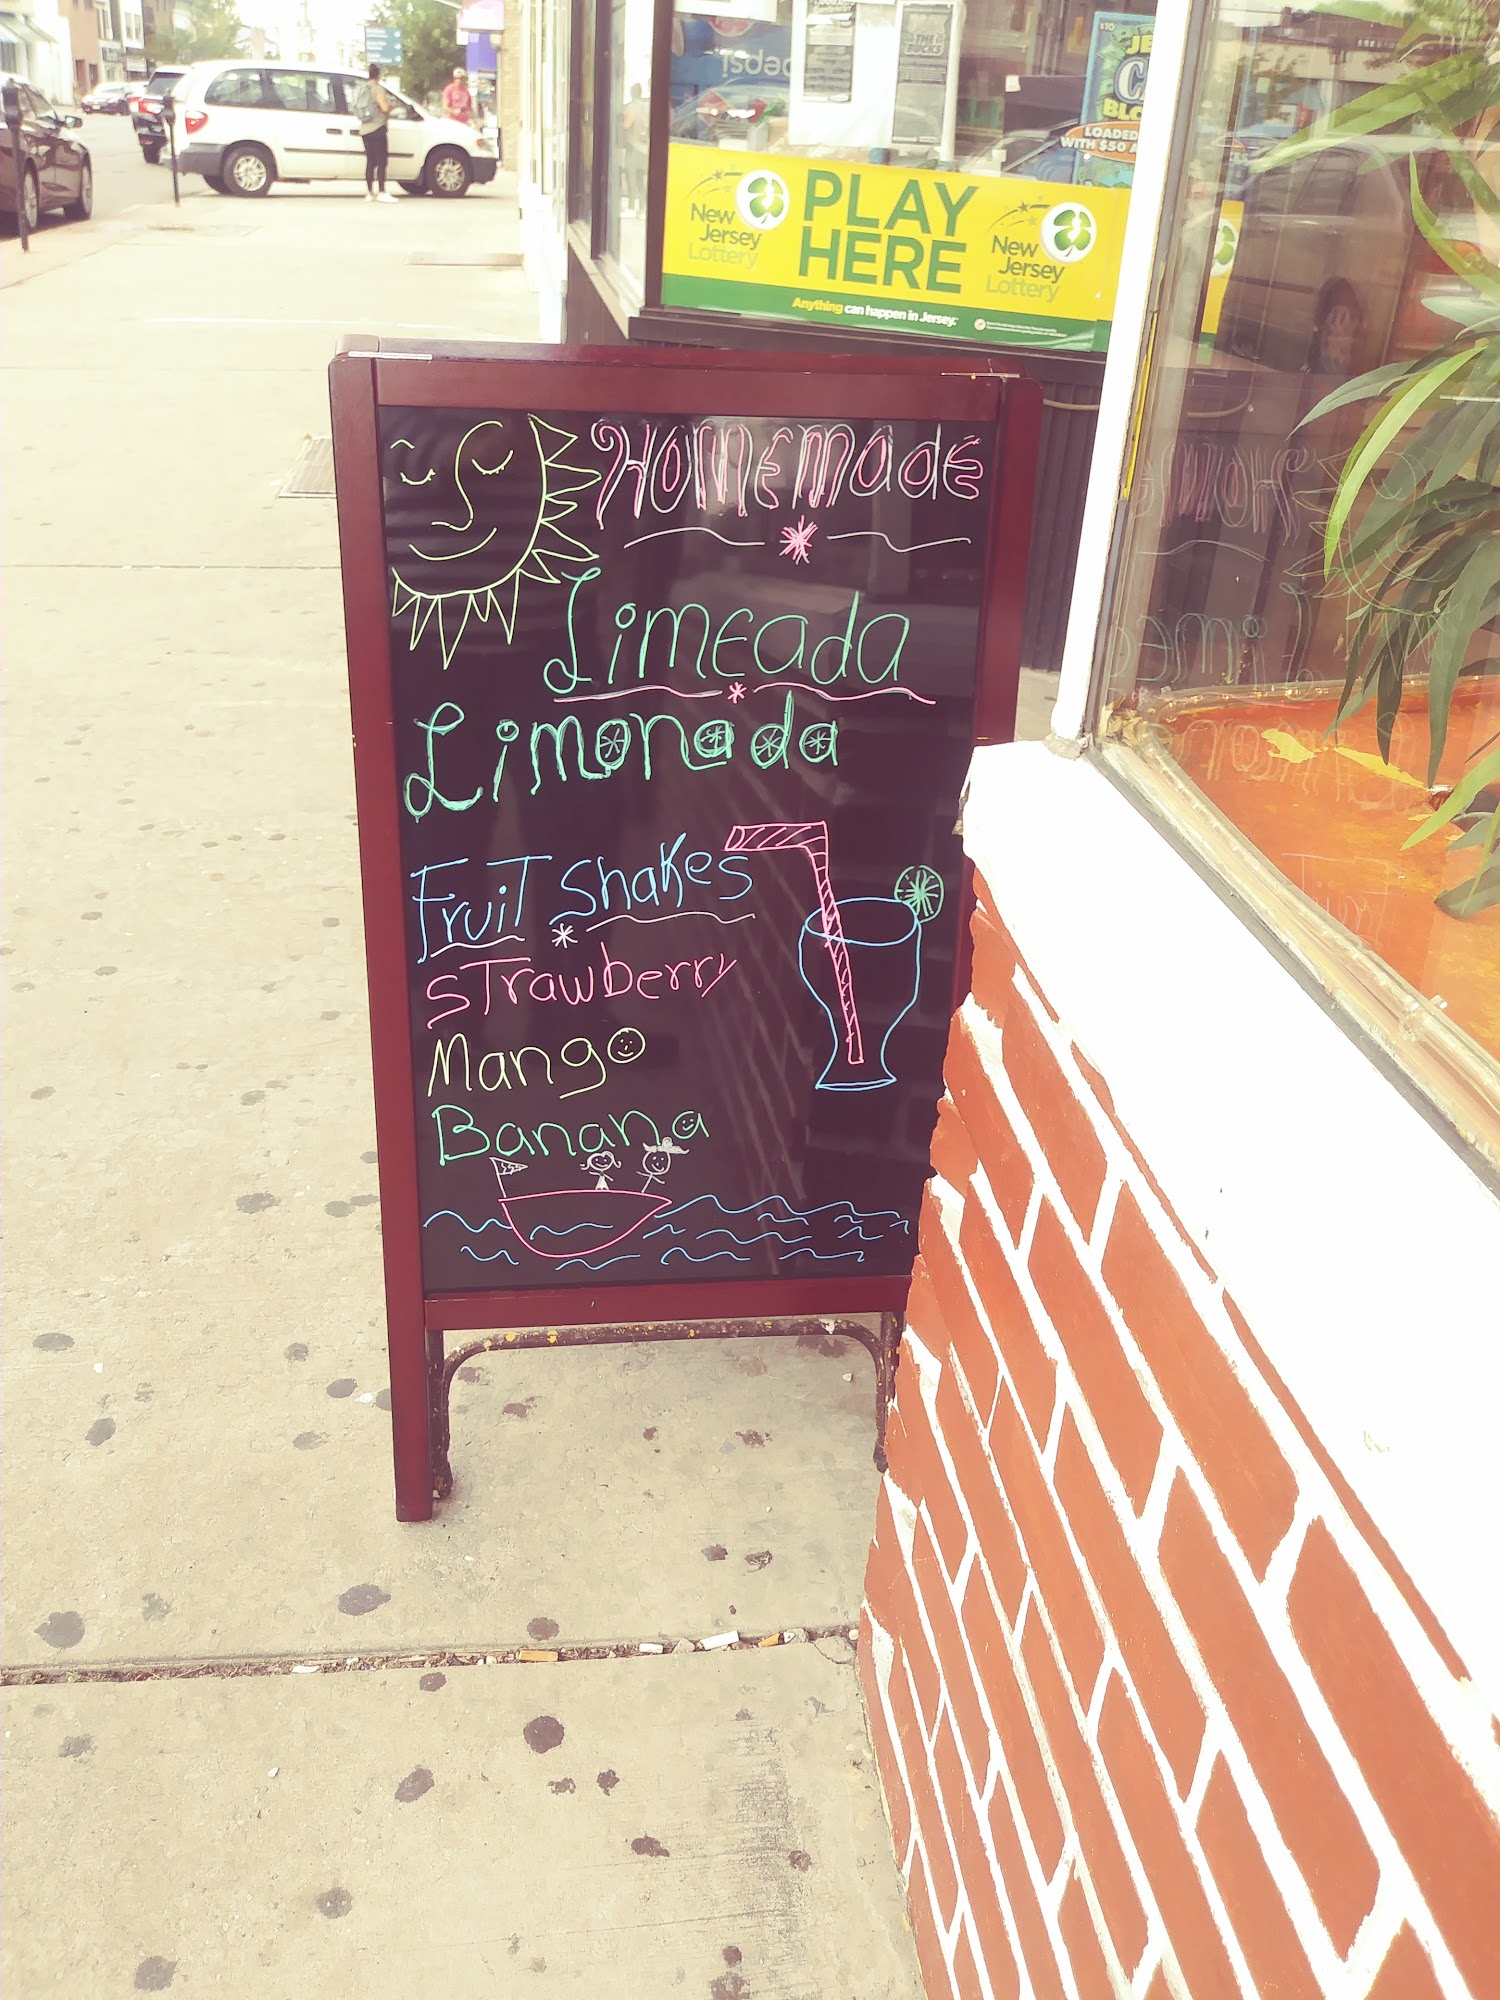 Homemade
Limeada
Limonada
Fruit Shakes
Strawberry
Mango
Banana
PLAY
HERE
New
Jersey
Lottery
New
Jersey
Lottery
Anything can happen in Jersey.
pepsi
THE
BUCKS
$10
LOADED
WITH $50